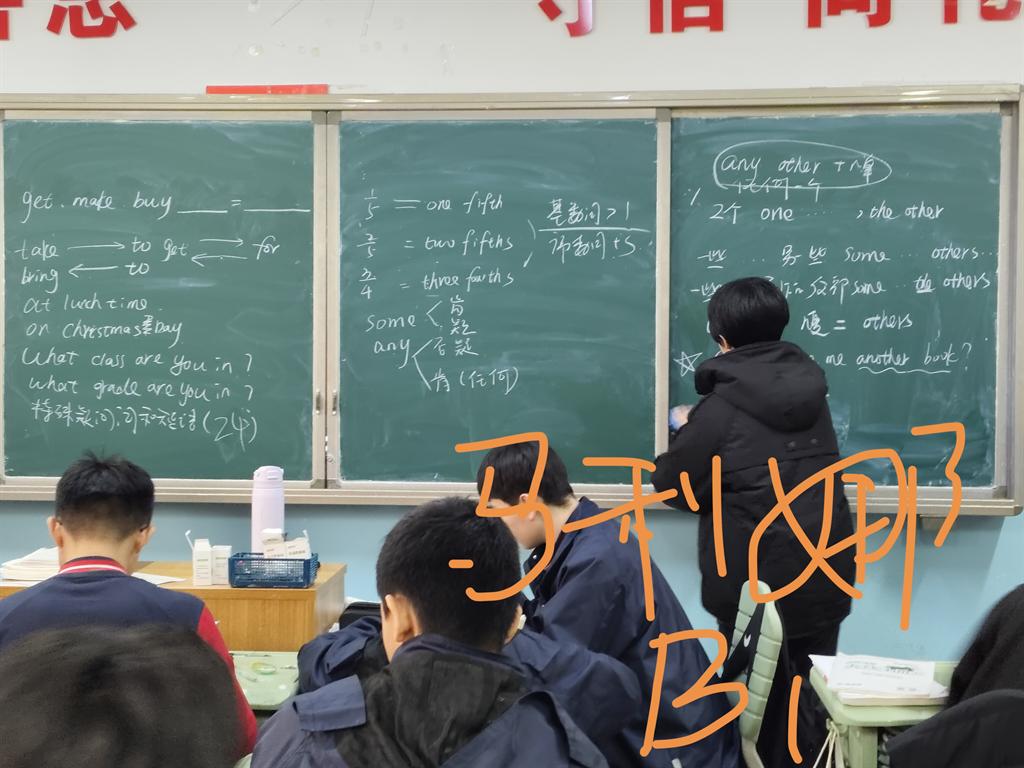 守信
get. make. buy ____ = ____
take → to get ⇄ for
bring ← to
at lunch time.
on Christmas Day
What class are you in ?
what grade are you in ?
特殊疑问词和短语 (24)
1/5 = one fifth
2/5 = two fifths
3/4 = three fourths
基数词>1
序数词+s
some < 肯
疑
any < 否疑
肯 (任何)
any other + n单
任何一个
2个 one ...., the other
一些 ... 另些 some ... others...
一些 some ... the others
= others
☆ me another book?
马利娜
B1